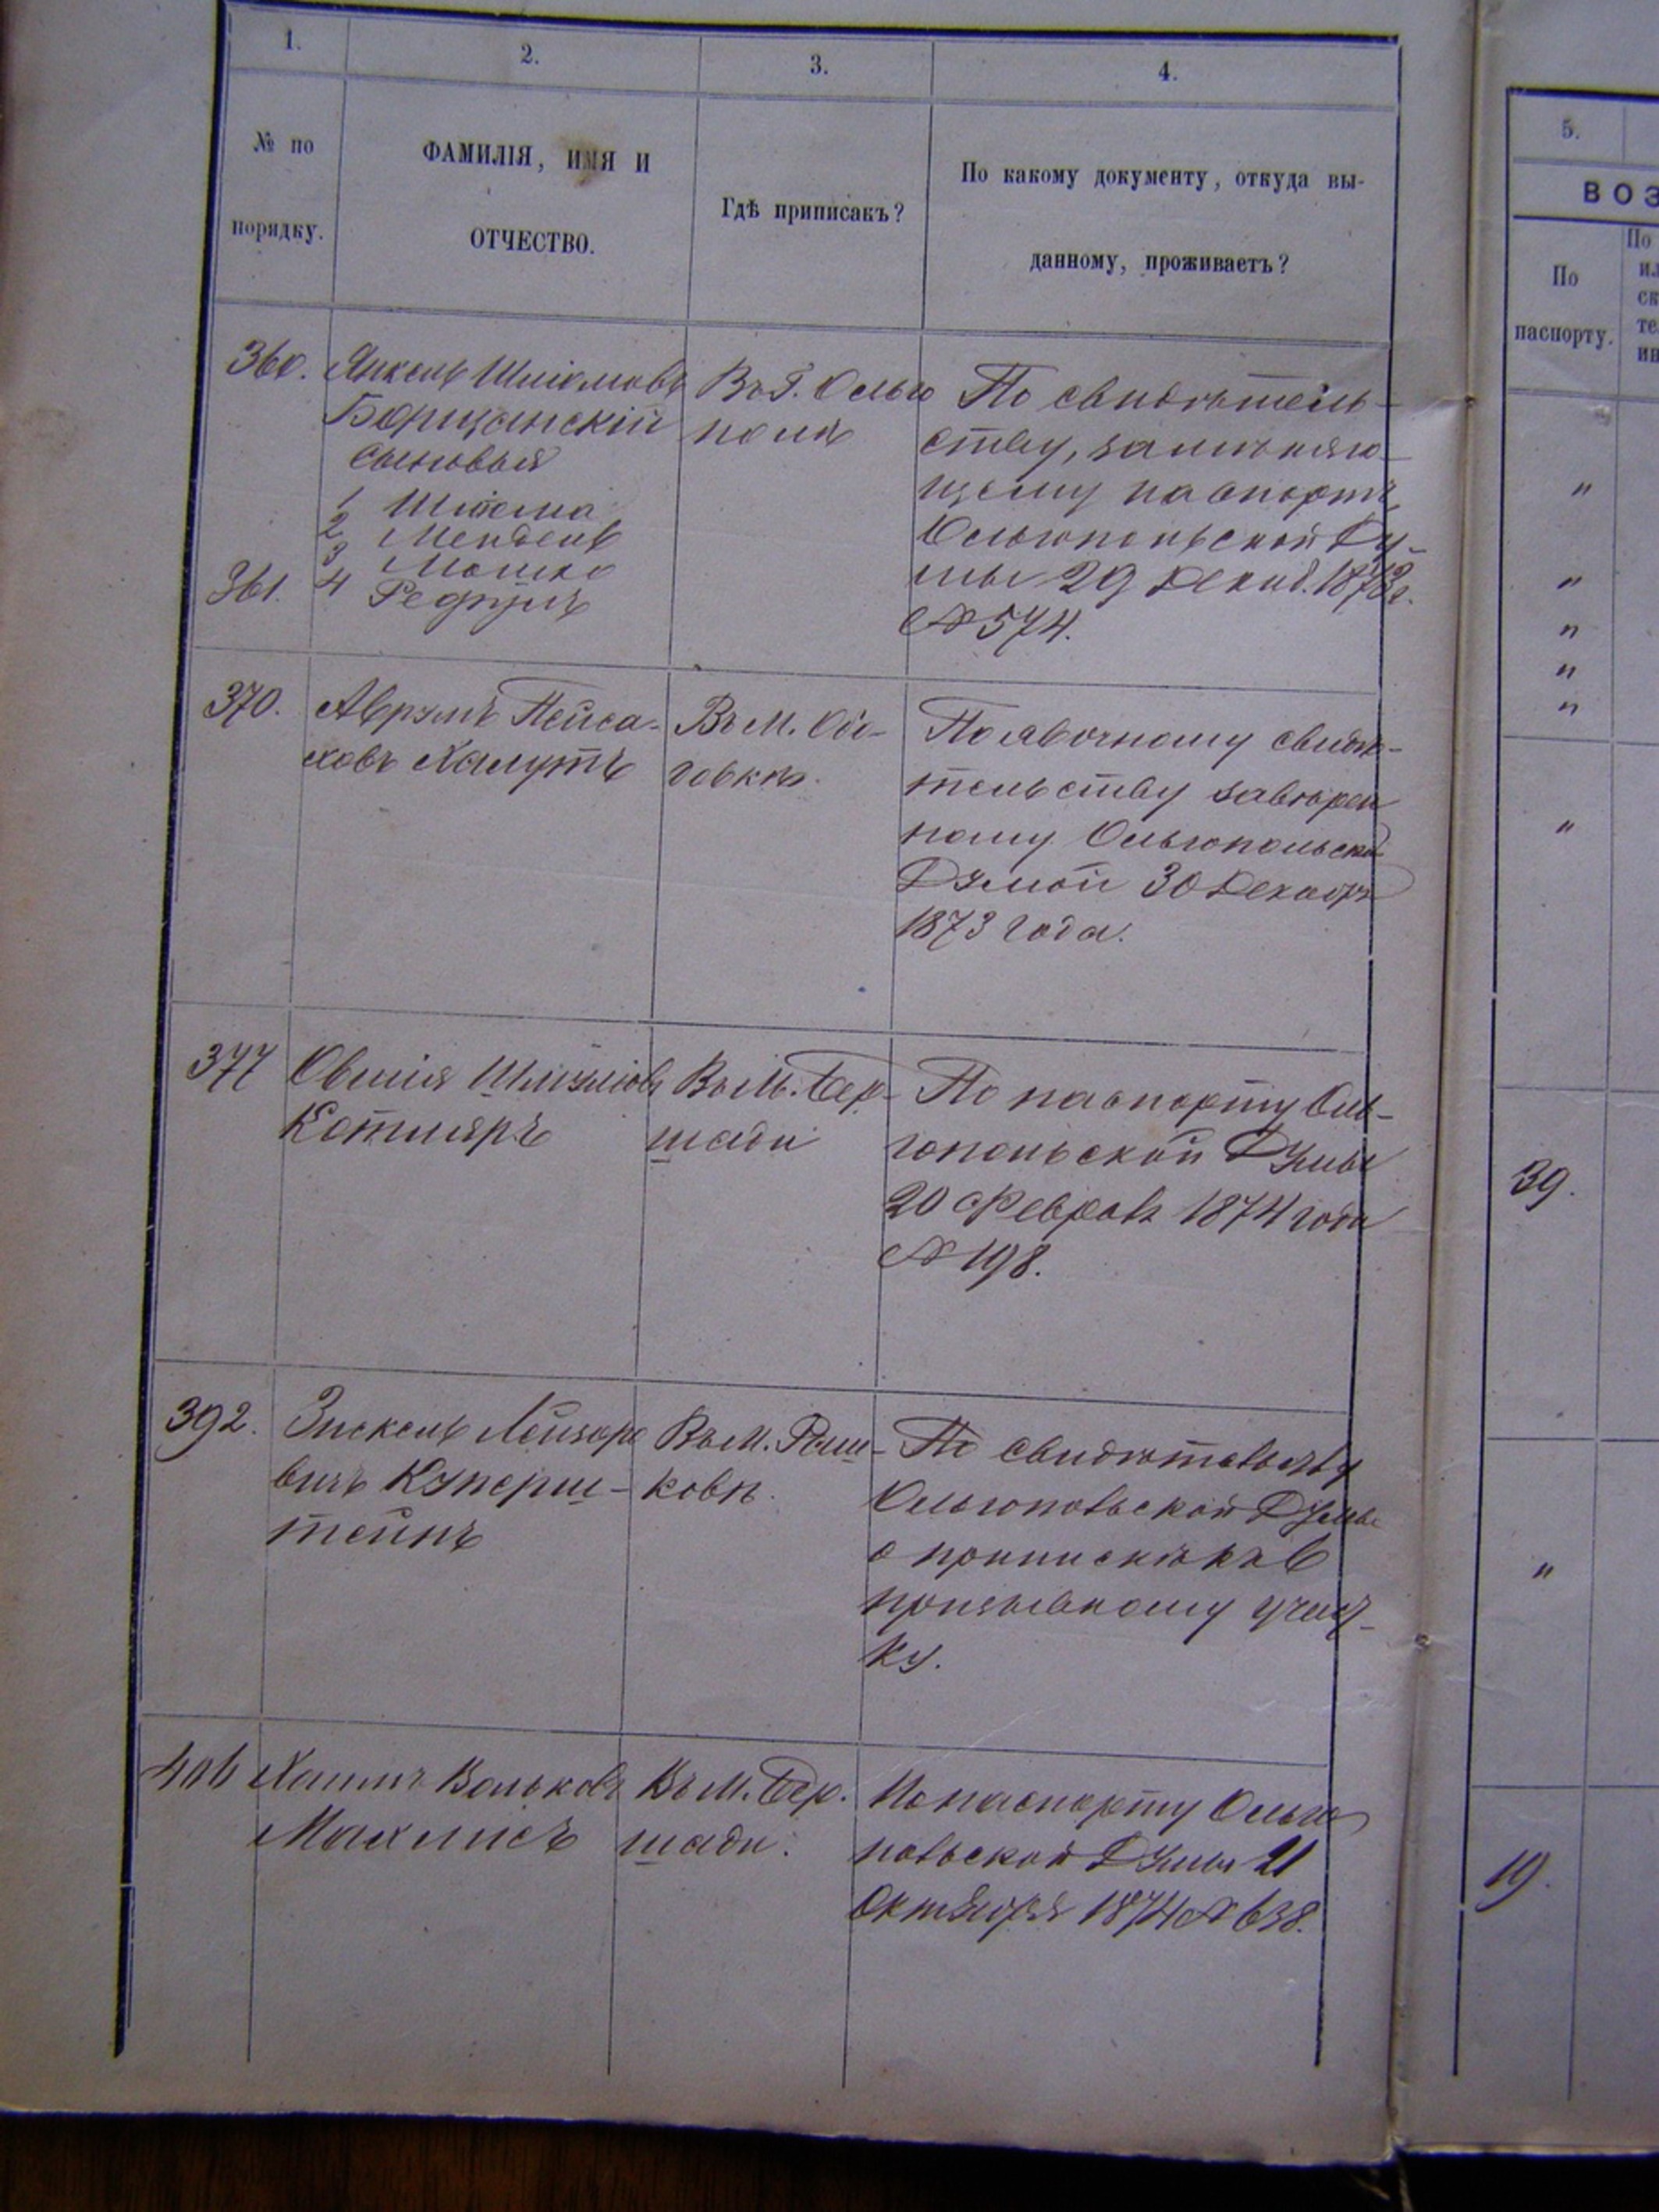 1.
2.
3.
4.
№ по
порядку.
ФАМИЛІЯ, ИМЯ И
ОТЧЕСТВО.
Гдѣ приписакъ?
По какому документу, откуда вы-
данному, проживаетъ?
360. Янкель Шліомовъ
Борщанскій
сыновья
1 Шліома
2 Мендель
3 Мошко
361. 4 Рефулъ
Въ г. Ольго
полѣ
По свидѣтель-
ству, замѣняю-
щему паспортъ,
Ольгопольской Ду-
мы 29 Декаб. 1873 г.
№ 574.
370. Аврумъ Пейса-
ховъ Халутъ
Въ м. Обо-
довкѣ.
По явочному свидѣ-
тельству завѣрен
ному Ольгопольской
Думой 30 Декабря
1873 года.
377 Овшія Шмулiовъ
Котляръ
Въ м. Бер-
шади
По паспорту Оль-
гопольской Думы
20 Февраля 1874 года
№ 198.
392. Зискель Лейзоро
вичъ Куперш-
тейнъ
Въ м. Рашковѣ
По свидѣтельству
Ольгопольской Думы
о припискѣ къ
призывному участ-
ку.
406 Хаимъ Вольковъ
Махлисъ
Въ м. Бер.
шади.
По паспорту Ольго
польской Думы 21
Октября 1874 № 638.
5.
ВОЗ
По
паспорту.
По
"
"
"
"
"
"
39.
"
19.